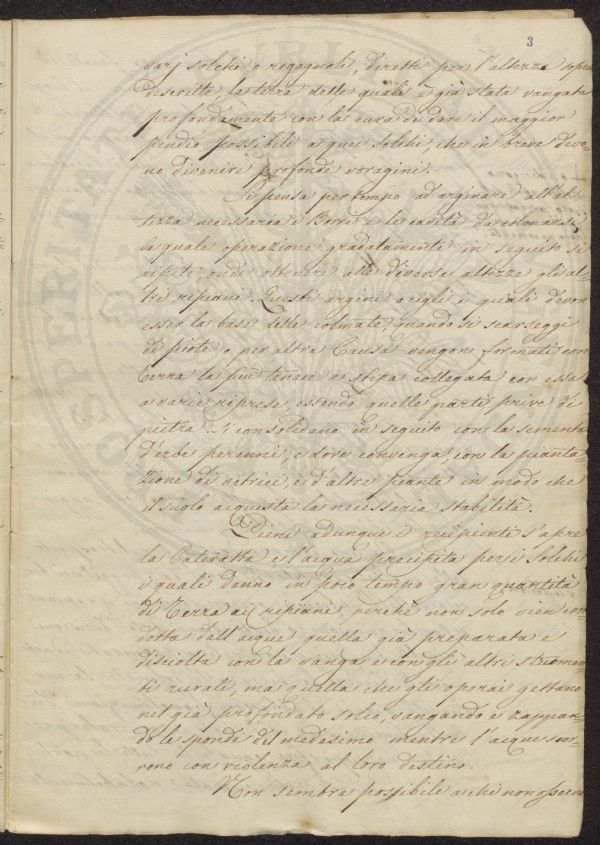 3
varj solchi o regagnoli, diretti per l'altezza sopra
descritta la terra delle quali è già stata vangata
profondamente con la cura di dare il maggior
pendio possibile a quei solchi, che in breve devo-
no divenire profonde voragini.
Si pensa per tempo ad arginare all'al-
tezza necessaria i Borri e le cavità da colmarsi,
la quale operazione gradatamente in seguito si
ripete onde ottenere alle diverse altezze gli al-
tri ripiani. Questi argini o cigli i quali devon
esser la base delle colmate, quando si scarseggi
di piote o per altra Causa vengon formati con
terra la più tenace e stipa collegata con essa
a varie riprese, essendo quelle parti prive di
pietra. Si consolidano in seguito con la sementa
d'erbe perenni, e dove convenga, con la pianta-
zione di vetrici, e d'altre piante in modo che
il suolo acquista la necessaria stabilità.
Pieni adunque i recipienti s'apre
la Cateratta e l'acqua precipita per i Solchi
i quali danno in poco tempo gran quantità
di Terra ai ripiani, perchè non solo vien con-
dotta dall'acque quella già preparata e
disciolta con la vanga e con gli altri strumen-
ti rurali, ma quella che gli operai gettano
nel già profondato solco, vangando e zappan-
do le sponde del medesimo mentre l'acque scor-
rono con violenza al loro destino.
Non sembra possibile a chi non osserva